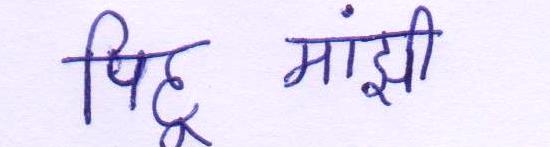 पिटू मांझी